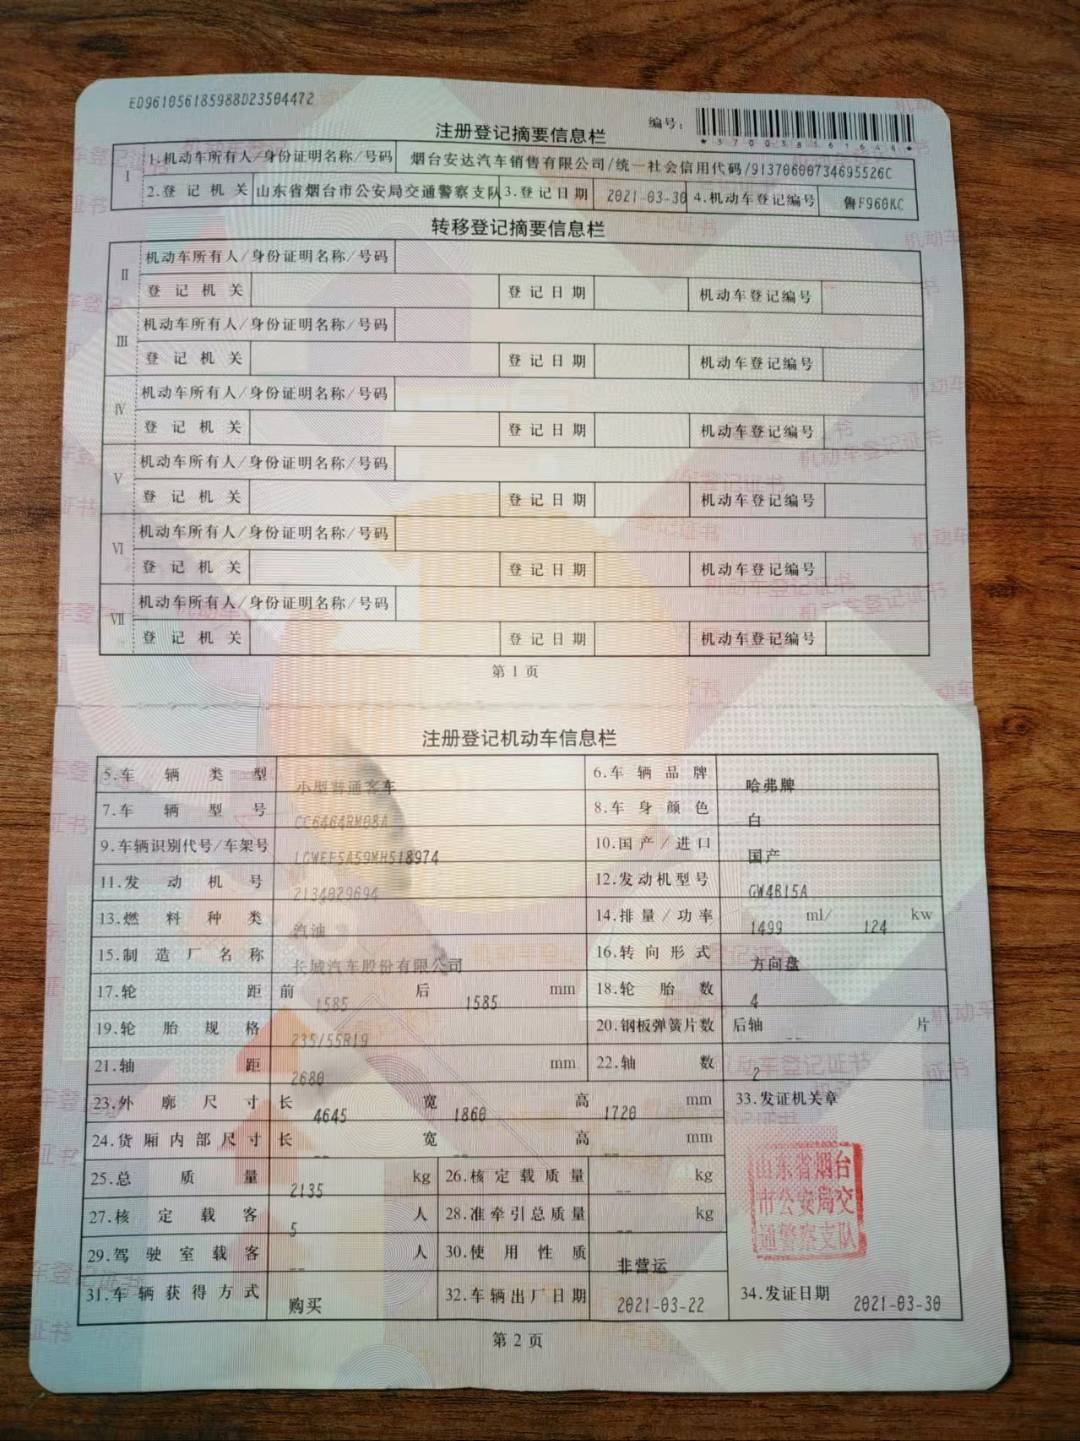 ED961056185988D23504472
注册登记摘要信息栏
编号:
*370038161648*
I
1.机动车所有人/身份证明名称/号码 烟台安达汽车销售有限公司/统一社会信用代码/91370600734695526C
2.登记机关 山东省烟台市公安局交通警察支队 3.登记日期 2021-03-30 4.机动车登记编号 鲁F960KC
转移登记摘要信息栏
II
机动车所有人/身份证明名称/号码
登记机关 登记日期 机动车登记编号
III
机动车所有人/身份证明名称/号码
登记机关 登记日期 机动车登记编号
IV
机动车所有人/身份证明名称/号码
登记机关 登记日期 机动车登记编号
V
机动车所有人/身份证明名称/号码
登记机关 登记日期 机动车登记编号
VI
机动车所有人/身份证明名称/号码
登记机关 登记日期 机动车登记编号
VII
机动车所有人/身份证明名称/号码
登记机关 登记日期 机动车登记编号
第1页
注册登记机动车信息栏
5.车辆类型 小型普通客车 6.车辆品牌 哈弗牌
7.车辆型号 CC6464RM08A 8.车身颜色 白
9.车辆识别代号/车架号 LGWEF5A59MH518974 10.国产/进口 国产
11.发动机号 2134029694 12.发动机型号 GW4B15A
13.燃料种类 汽油 14.排量/功率 1499 ml/ 124 kw
15.制造厂名称 长城汽车股份有限公司 16.转向形式 方向盘
17.轮距 前 1585 后 1585 mm 18.轮胎数 4
19.轮胎规格 235/55R19 20.钢板弹簧片数 后轴 -- 片
21.轴距 2680 mm 22.轴数 2
23.外廓尺寸 长 4645 宽 1860 高 1720 mm 33.发证机关章
24.货厢内部尺寸 长 -- 宽 -- 高 -- mm
25.总质量 2135 kg 26.核定载质量 -- kg
27.核定载客 5 人 28.准牵引总质量 -- kg
山东省烟台
市公安局交
通警察支队
29.驾驶室载客 -- 人 30.使用性质 非营运
31.车辆获得方式 购买 32.车辆出厂日期 2021-03-22 34.发证日期 2021-03-30
第2页